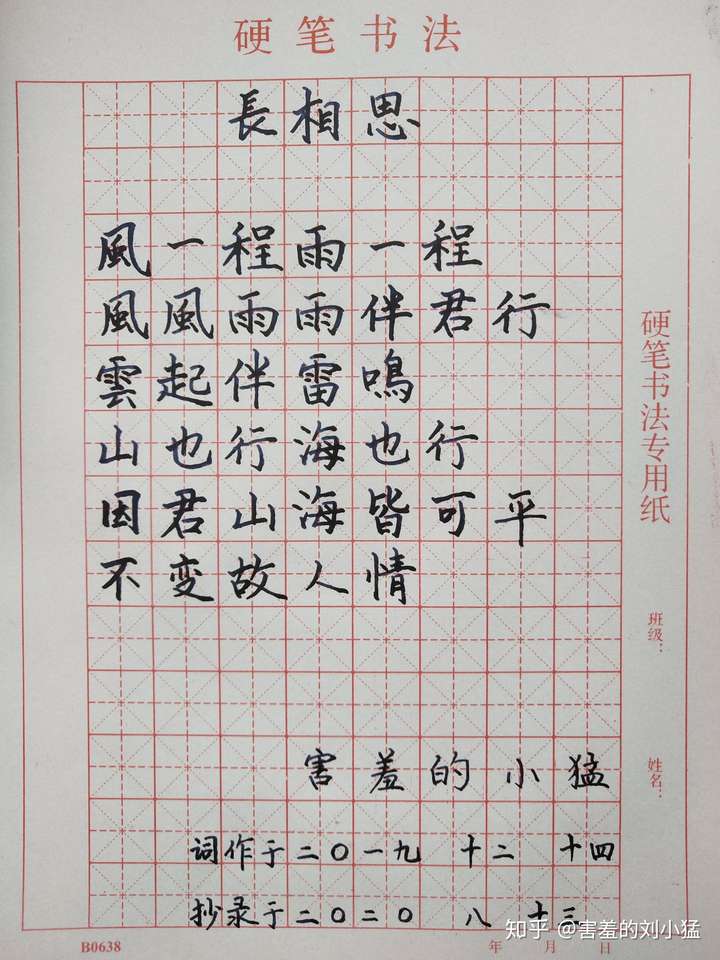 硬笔书法
長相思
風一程雨一程
風風雨雨伴君行
雲起伴雷鳴
山也行海也行
因君山海皆可平
不变故人情
害羞的小猛
词作于二〇一九 十二 十四
抄录于二〇二〇 八 十三
硬笔书法专用纸
班级：
姓名：
B0638
年 月 日
知乎 @害羞的刘小猛